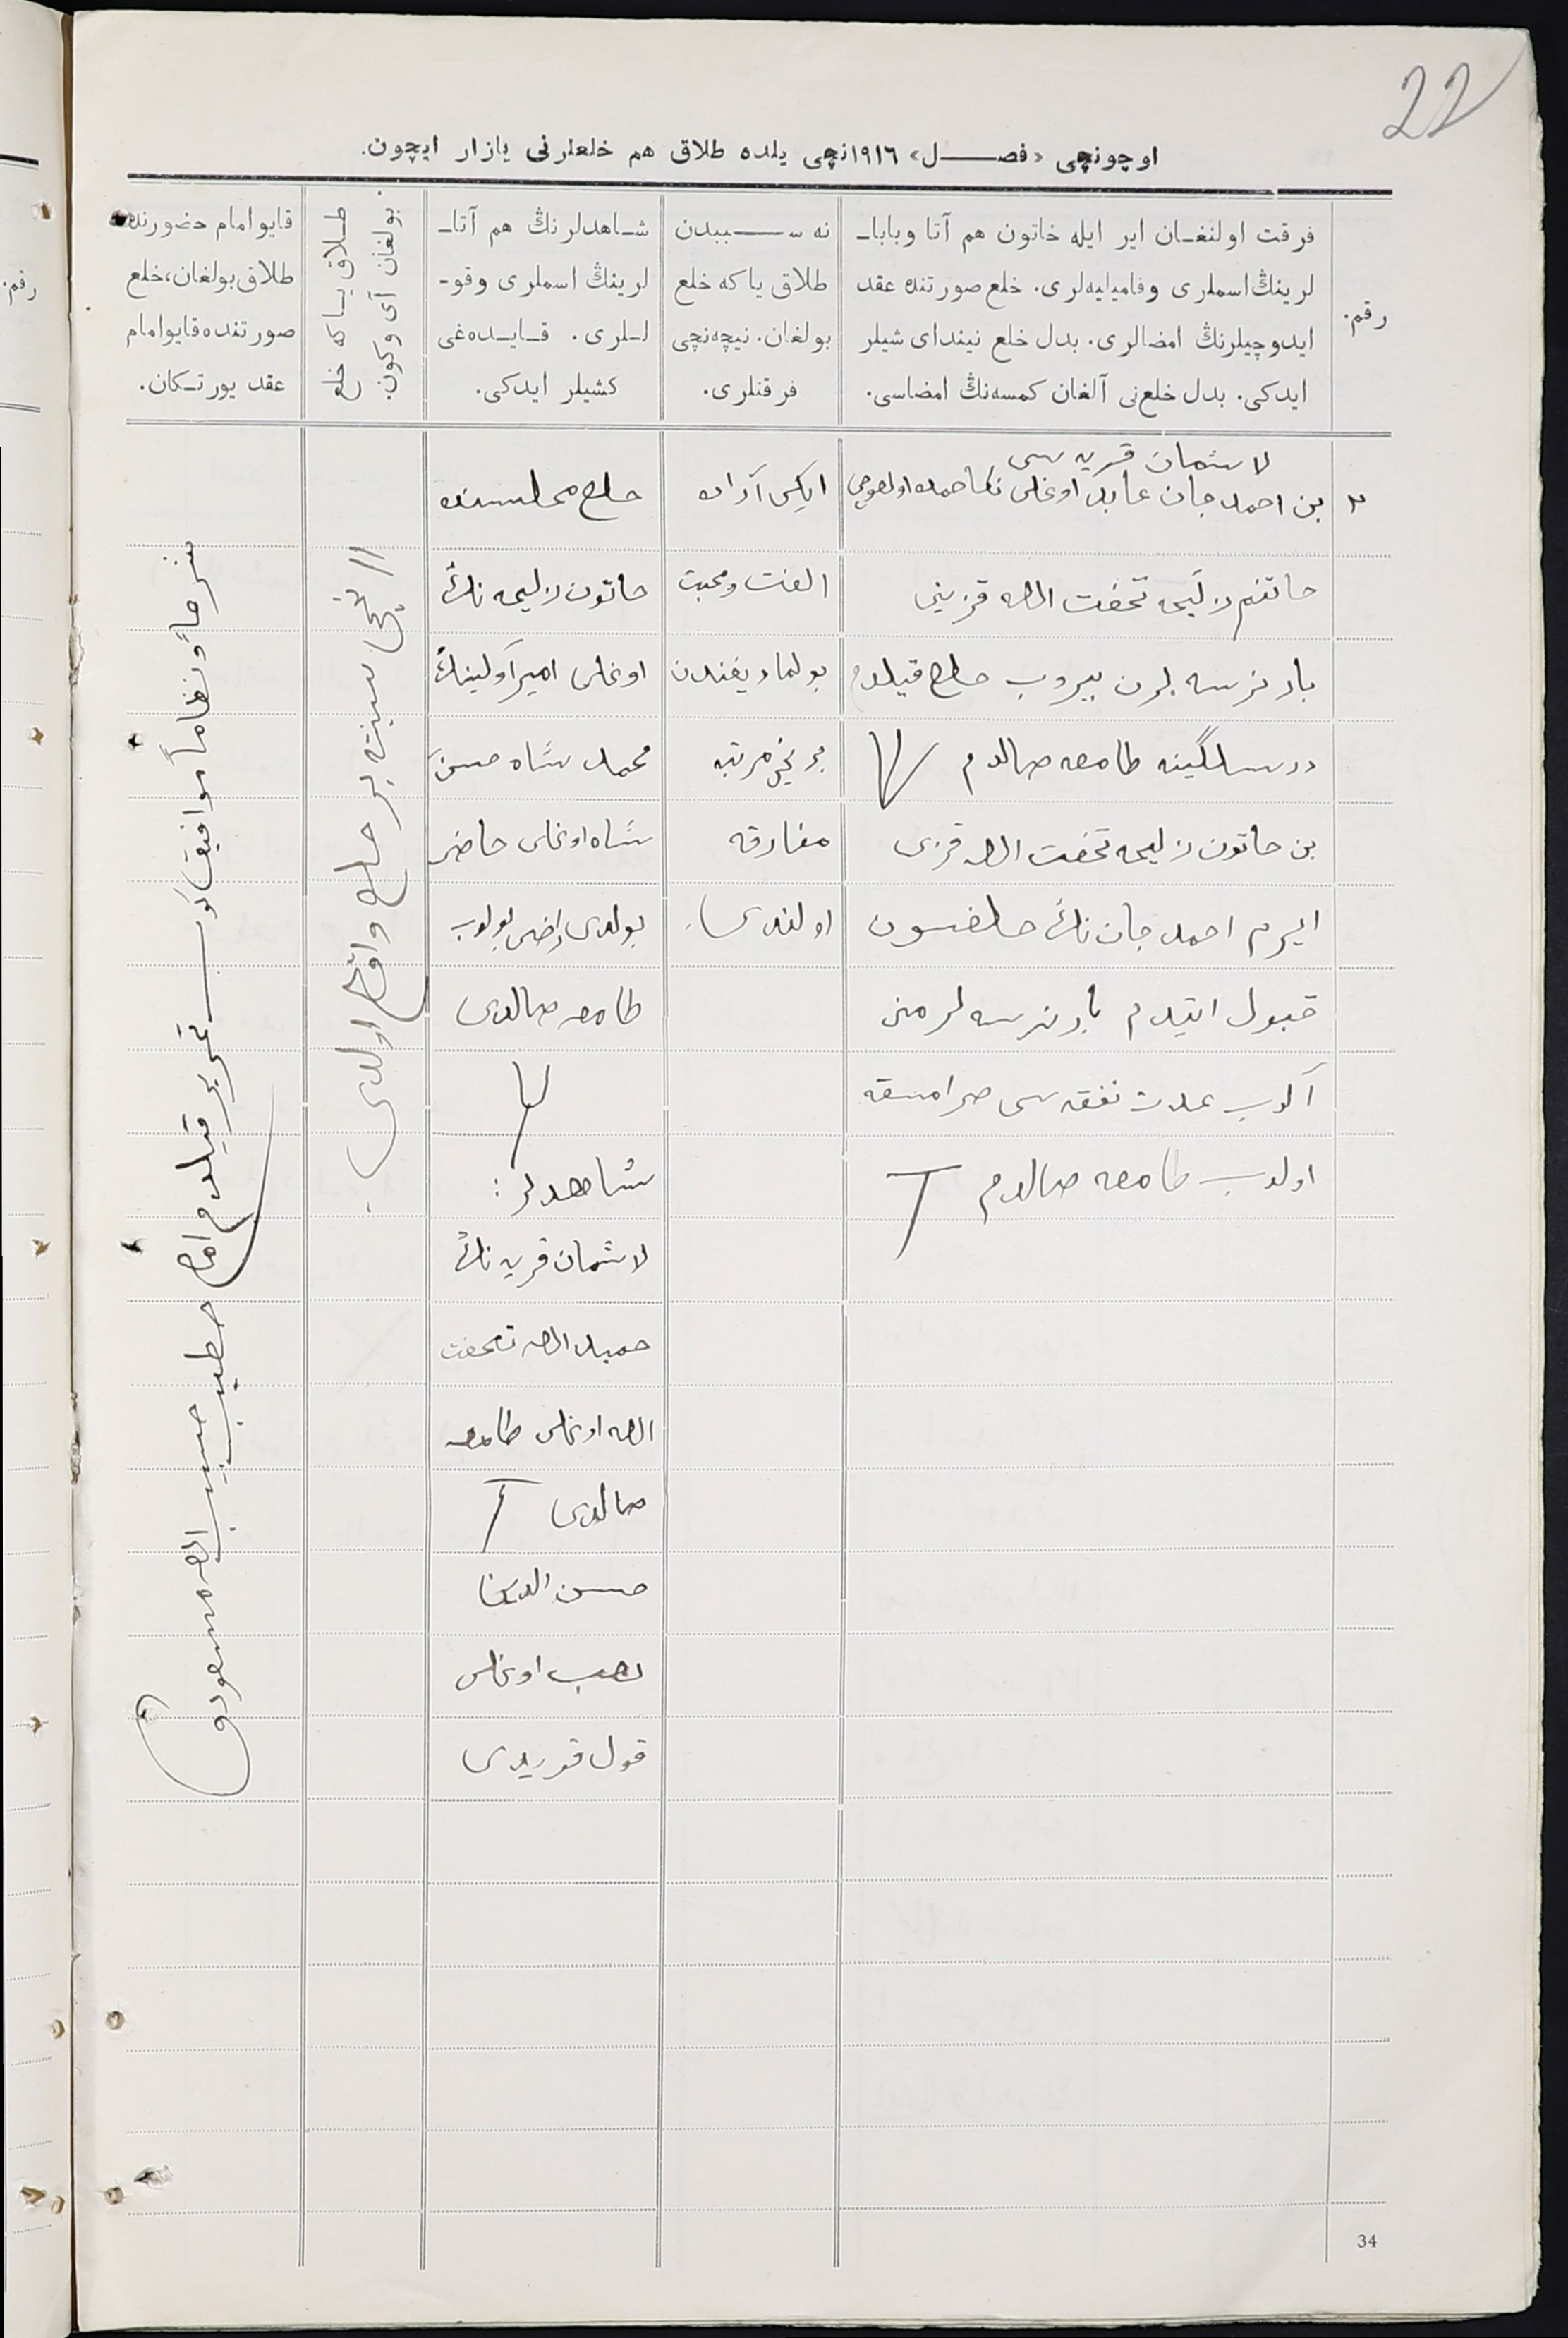 22
اوچونچی «فصل» ۱۹۱٦نچی یلده طلاق هم خلعلرنی یازار ایچون.
رقم.
فرقت اولنغان ایر ایله خاتون هم آتا وبابا-
لرینڭ اسملری وفامیلیه‌لری. خلع صورتنده عقد
ایدوچیلرنڭ امضالری. بدل خلع نیندای شیلر
ایدکی. بدل خلع‌نی آلغان کمسه‌نڭ امضاسی.
نه سببدن
طلاق یاکه خلع
بولغان. نیچه‌نچی
فرقتلری.
شاهدلرنڭ هم آتا-
لرینڭ اسملری وقو-
للری. قایده‌غی
کشیلر ایدکی.
طلاق یاکه خلع
بولغان آی وکون.
قایو امام حضورنده
طلاق بولغان، خلع
صورتنده قایو امام
عقد یورتکان.
۲
لاشمان قریه سی
بن احمد جان عابد اوغلی
خاتنم زلیحه تحفت الله قزینی
بار نرسه لرن بیروب خلع قیلدم
طامعه صالدم
بن خاتون زلیحه تحفت الله قزی
ایرم احمد جان نڭ خلعسون
قبول ایتدم بار نرسه لرمنی
آلوب عدت نفقه سی
اولوب طامعه صالدم
ایکی آراده
الفت ومحبت
بولمادیغندن
برنچی مرتبه
مفارقه
اولندی.
خلع مجلسنده
خاتون زلیحه نڭ
اوغلی امیرآولینڭ
محمد شاه حسن
شاه اوغلی حاضر
بولدی راضی بولوب
طامعه صالدی
شاهدلر:
لاشمان قریه نڭ
حمید الله تحفت
الله اوغلی طامعه
صالدی
حسن الدین
اوغلی
قول قویدی
۱۱ نچی سینتەبر خلع واقع اولدی.
شرعاً ونظاماً موافق کوروب تحریر قیلدم امام خطیب حبیب الله مسعودف
34